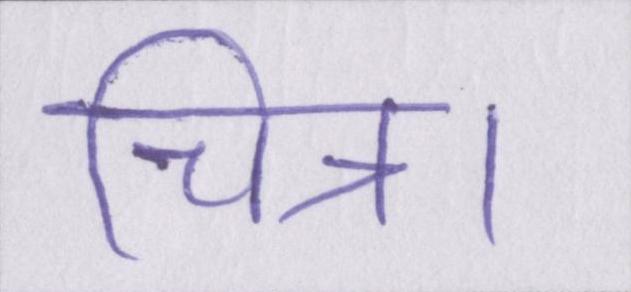 चित्र।